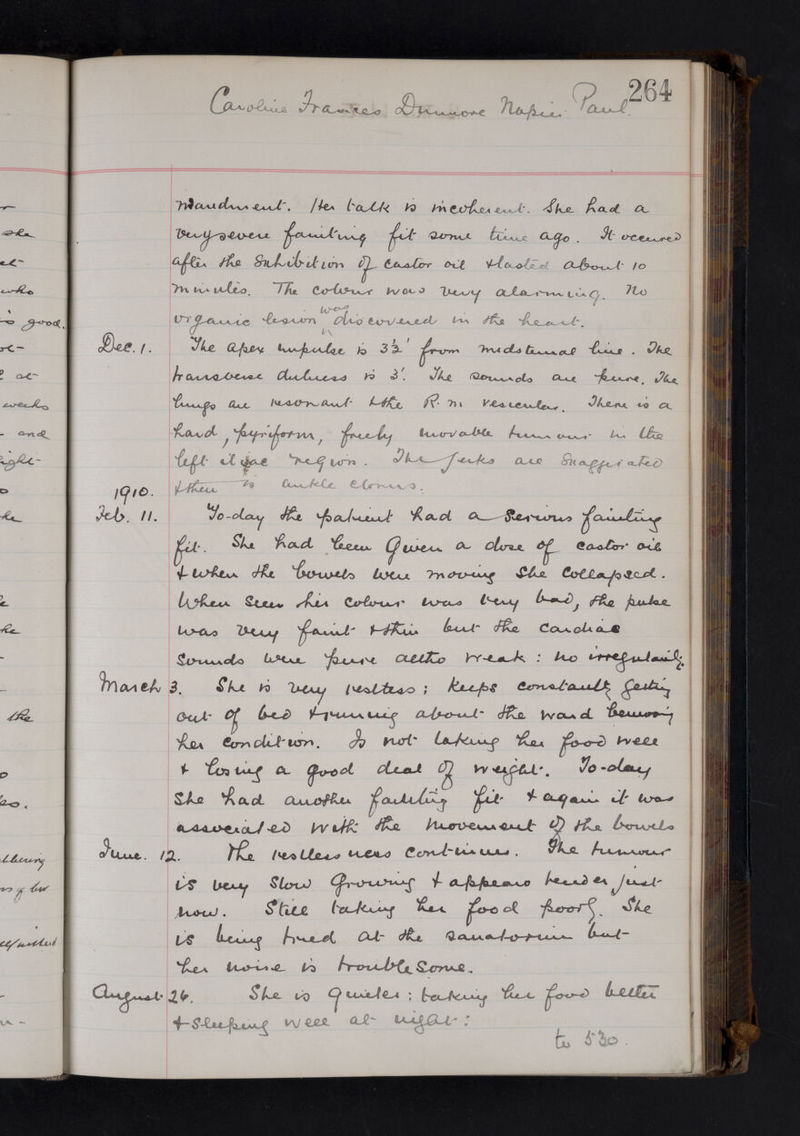 264
Caroline Frances Dunmore Napier Paul.
mandment. Her talk is incoherent. She had a
very severe fainting fit some time ago. It occured
after the exhibition of castor oil & lasted about 10
minutes. The colour was very alarming. No
organic lesion was discovered in the heart.
Dec. 1. The apex impulse is 3½' from midsternal line. The
transverse dulness is 3'. The sounds are pure. The
lungs are resonant & the R. m. vesicular. There is a
hard, pyriform, freely movable tumour in the
left iliac region. The jerks are exaggerated
1910. & there is ankle clonus.
Feb. 11. To-day the patient had a serious fainting
fit. She had been given a dose of castor oil
& when the bowels were moving she collapsed.
When seen her colour was very bad, the pulse
was very faint & thin but the cardiac
sounds were pure altho weak: no irregularity.
March 3. She is very restless; keeps constantly getting
out of bed & running about the ward bemoaning
her condition. Is not taking her food well
& losing a good deal of weight. To-day
she had another fainting fit & again it was
associated with the movement of the bowels
June. 12. The restlessness continues. The tumour
is very slow growing & appears tender just
now. Still taking her food poorly. She
is being tried at the sanatorium but
her noise is troublesome.
August 26. She is quieter: taking her food better
& sleeping well at night:
to 530.
she
who
is good.
at
weeks
and
the